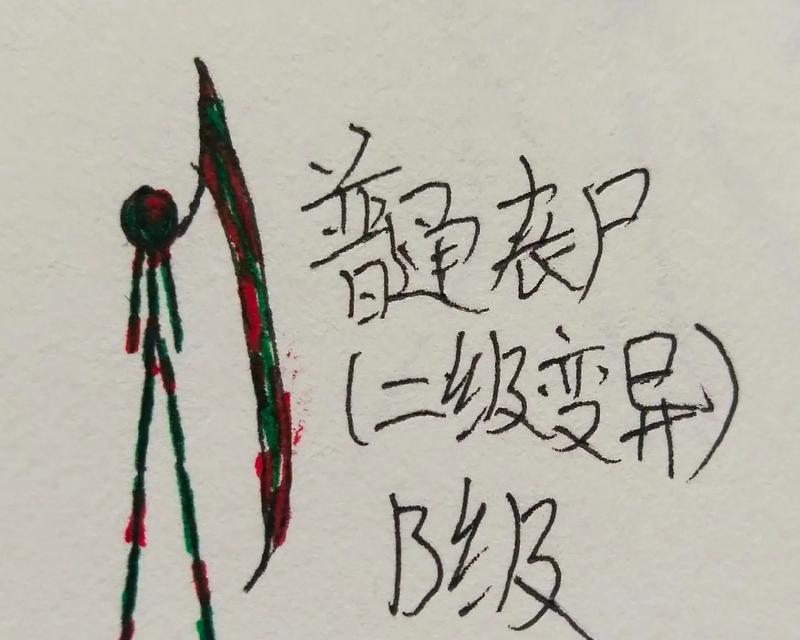 普通丧尸
(二级变异)
B级